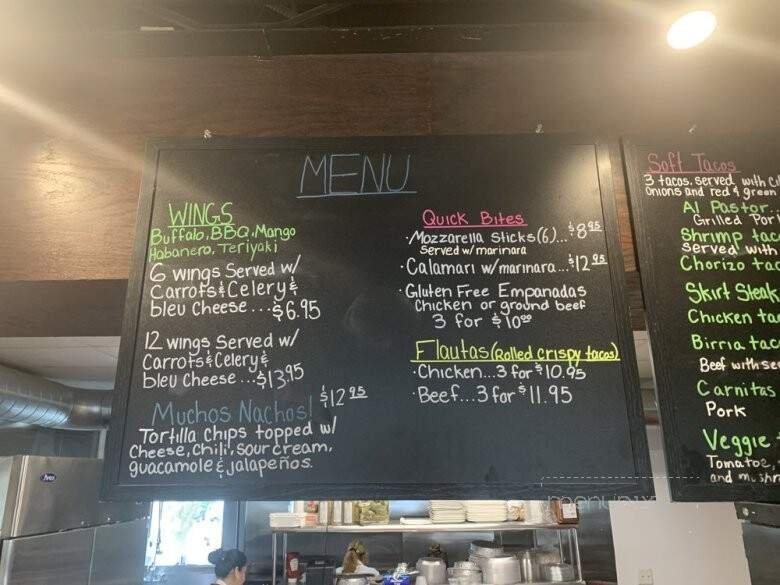 MENU
WINGS
Buffalo, BBQ, Mango
Habanero, Teriyaki
6 wings Served w/
Carrots & Celery &
bleu Cheese...$6.95
12 wings Served w/
Carrots & Celery &
bleu Cheese...$13.95
Muchos Nachos! $12.95
Tortilla chips topped w/
Cheese, Chili, sour cream,
guacamole & jalapeños.
Quick Bites
· Mozzarella Sticks (6)...$8.95
Served w/ marinara
· Calamari w/marinara...$12.95
· Gluten Free Empanadas
Chicken or ground beef
3 for $10.00
Flautas (Rolled crispy tacos)
· Chicken...3 for $10.95
· Beef...3 for $11.95
Soft Tacos
3 tacos, served with
Onions and red & green
Al Pastor
Grilled Por
Shrimp tac
Served with
Chorizo tac
Skirt Steak
Chicken ta
Birria tac
Beef with
Carnitas
Pork
Veggie
Tomatoe,
and mushr
menupix